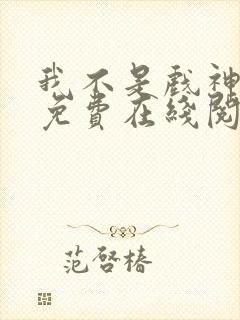 我不是戲神
免費在綫閱
范啓椿